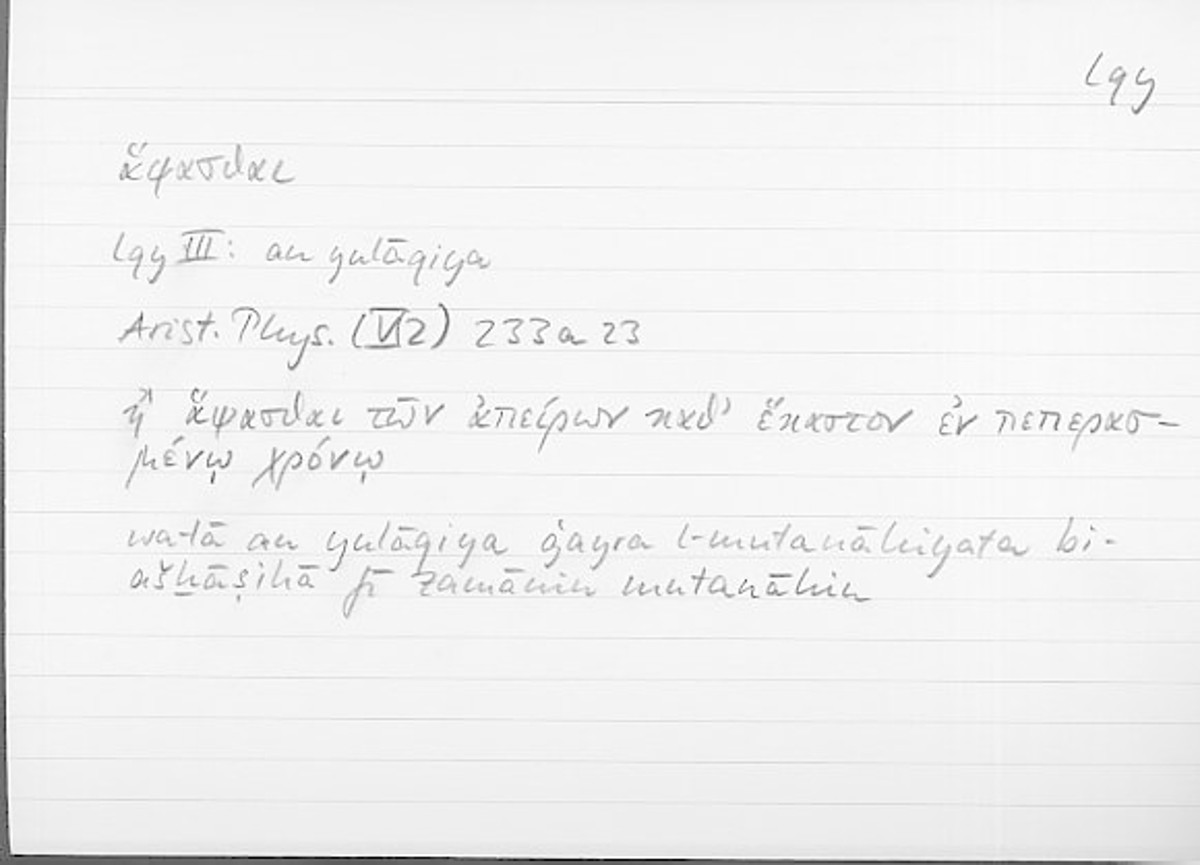 lqy
ἅψασθαι
lqy III: an yulāqiya
Arist. Phys. (VI2) 233a23
ἢ ἅψασθαι τῶν ἀπείρων καθ’ ἕκαστον ἐν πεπερασ-
μένῳ χρόνῳ
wa-lā an yulāqiya ġayra l-mutanāhiyata bi-
ašḫāṣihā fī zamānin mutanāhin